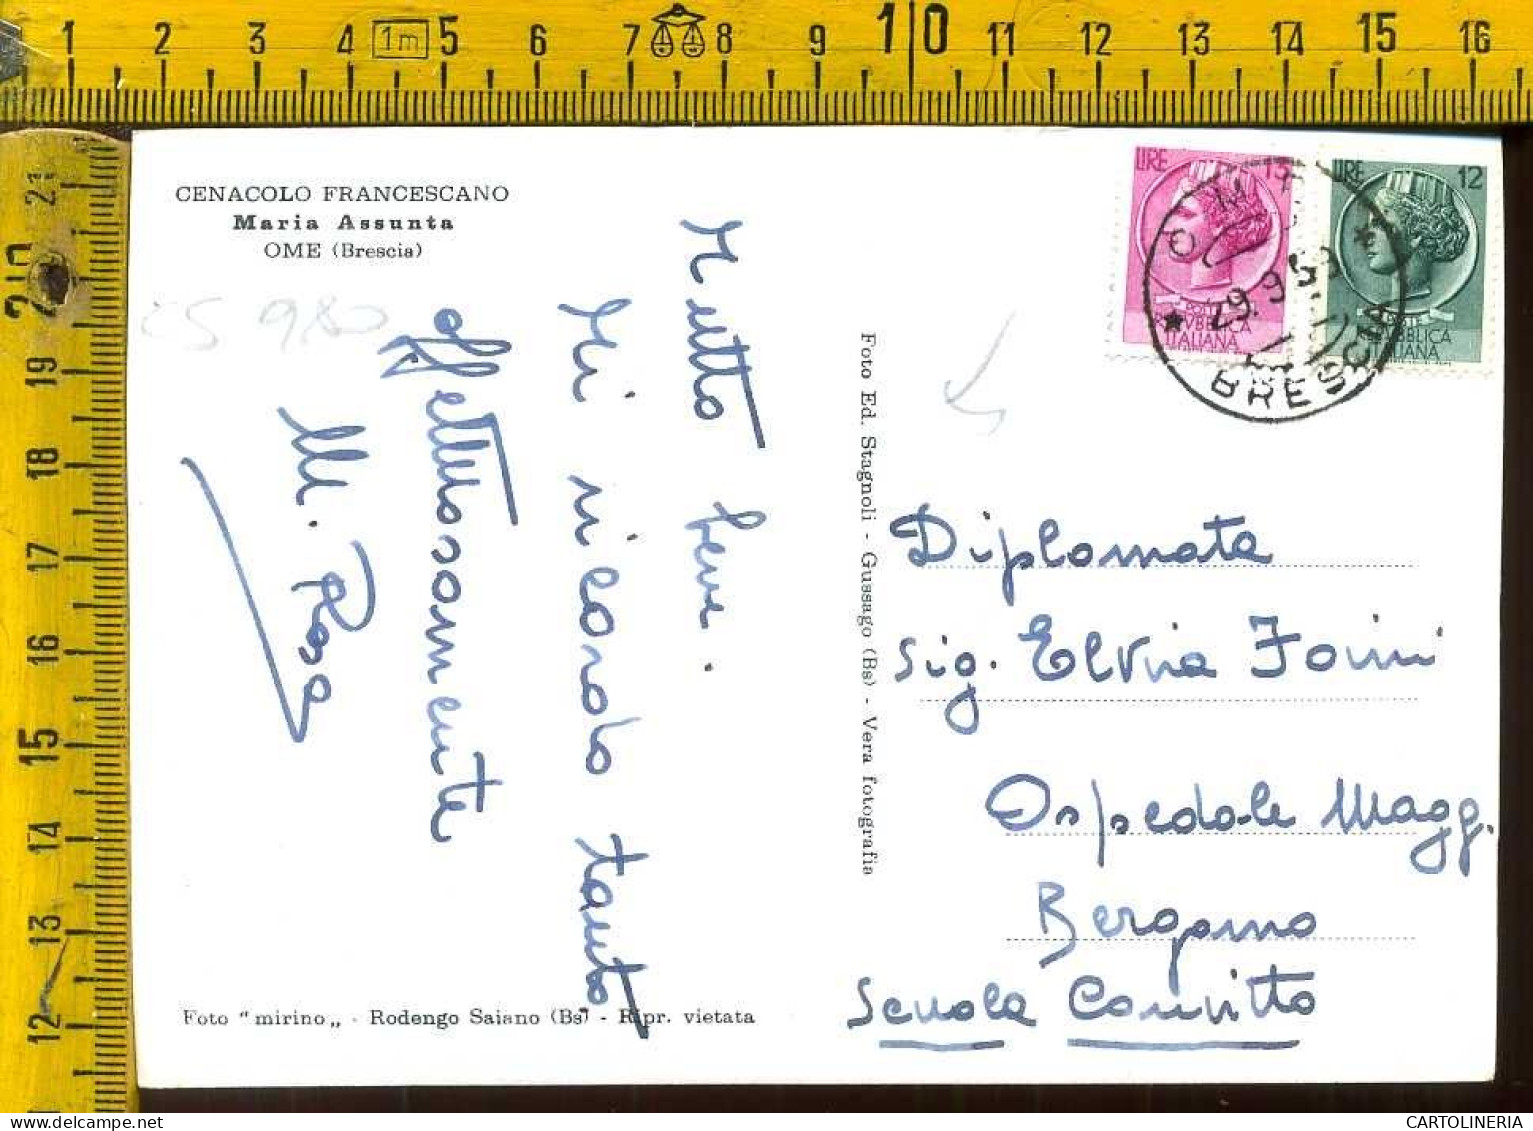 CENACOLO FRANCESCANO
Maria Assunta
OME (Brescia)
25 980
Mi ricordo tanto
Affettuosamente
M. Rosa
Foto "mirino„ - Rodengo Saiano (Bs) - Ripr. vietata
Foto Ed. Stagnoli - Gussago (Bs) - Vera fotografia
LIRE 13
ITALIANA
LIRE 12
ITALIANA
OME
29.9.59
BRESCIA
Diplomata
Sig. Elvira
Ospedale Magg.
Bergamo
Scuola Convitto
1 2 3 4 1m 5 6 7 8 9 10 11 12 13 14 15 16
21
20
19
18
17
16
15
14
13
12
CARTOLINERIA